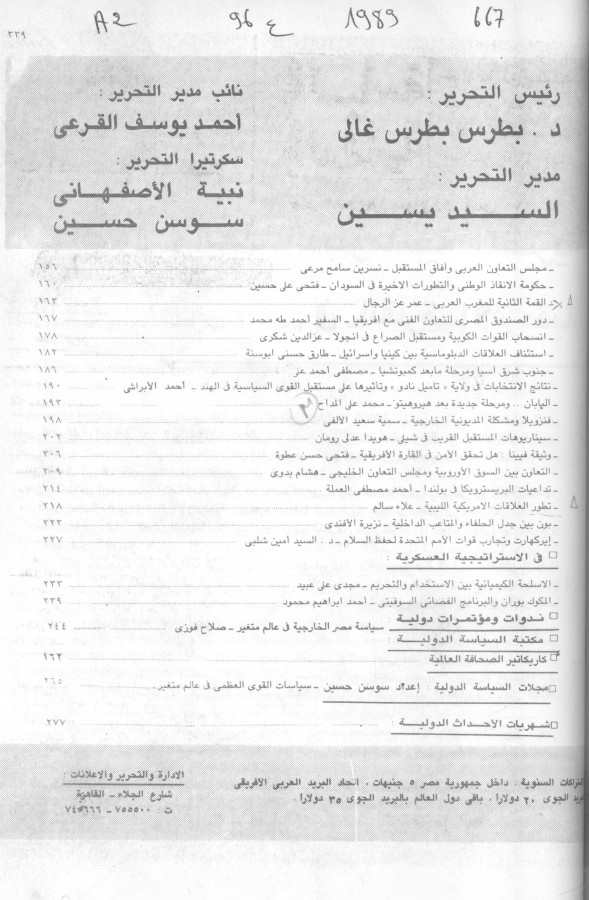 A2 96 ع 1989 667
٢٢٩
رئيس التحرير :
د . بطرس بطرس غالى
مدير التحرير :
الســـيد يســـين
نائب مدير التحرير :
أحمد يوسف القرعى
سكرتيرا التحرير :
نبية الأصفهـــانى
ســـوسن حســـين
ـ مجلس التعاون العربى وآفاق المستقبل ـ نسرين سامح مرعى ١٥٦
ـ حكومة الانقاذ الوطنى والتطورات الاخيرة فى السودان ـ فتحى على حسين ١٦٠
ـ القمة الثانية للمغرب العربى ـ عمر عز الرجال ١٦٣
ـ دور الصندوق المصرى للتعاون الفنى مع افريقيا ـ السفير أحمد طه محمد ١٦٧
ـ انسحاب القوات الكوبية ومستقبل الصراع فى انجولا ـ عزالدين شكرى ١٧٨
ـ استئناف العلاقات الدبلوماسية بين كينيا واسرائيل ـ طارق حسنى ابوسنة ١٨٢
ـ جنوب شرق آسيا ومرحلة مابعد كمبوتشيا ـ مصطفى أحمد عز ١٨٦
ـ نتائج الانتخابات فى ولاية « تاميل نادو » وتأثيرها على مستقبل القوى السياسية فى الهند ـ أحمد الأبراشى ١٩٠
ـ اليابان .. ومرحلة جديدة بعد هيروهيتو ـ محمد على المداح ١٩٣
ـ فنزويلا ومشكلة المديونية الخارجية ـ سمية سعيد الألفى ١٩٨
ـ سيناريوهات المستقبل القريب فى شيلى ـ هويدا عدلى رومان ٢٠٢
ـ وثيقة فيينا : هل تحقق الأمن فى القارة الأفريقية ـ فتحى حسن عطوة ٢٠٦
ـ التعاون بين السوق الأوروبية ومجلس التعاون الخليجى ـ هشام بدوى ٢٠٩
ـ تداعيات البريسترويكا فى بولندا ـ أحمد مصطفى العملة ٢١٤
ـ تطور العلاقات الامريكية الليبية ـ علاء سالم ٢١٨
ـ بون بين جدل الحلفاء والمتاعب الداخلية ـ نزيرة الأفندى ٢٢٣
ـ إيركهارت وتجارب قوات الأمم المتحدة لحفظ السلام ـ د . السيد أمين شلبى ٢٢٧
□ فى الاستراتيجية العسكرية :
ـ الاسلحة الكيميائية بين الاستخدام والتحريم ـ مجدى على عبيد ٢٣٣
ـ المكوك بوران والبرنامج الفضائى السوفيتى ـ أحمد ابراهيم محمود ٢٣٩
□ نـدوات ومؤتمـرات دوليـة سياسة مصر الخارجية فى عالم متغير ـ صلاح فوزى ٢٤٤
□ مكتبة السياسة الدوليـة :
□ كاريكاتير الصحافة العالمية ١٦٢
□ مجلات السياسة الدولية : إعداد سوسن حسين ـ سياسات القوى العظمى فى عالم متغير . ٢٦٥
□ شهريات الأحداث الدوليـة : ٢٧٧
الاشتراكات السنوية : داخل جمهورية مصر ٥ جنيهات ، اتحاد البريد العربى الأفريقى
البريد الجوى ٢٠ دولارا . باقى دول العالم بالبريد الجوى ٣٥ دولارا .
الادارة والتحرير والاعلانات :
شارع الجلاء ـ القاهرة
ت : ٧٥٥٥٠٠ ـ ٧٤٥٦٦٦